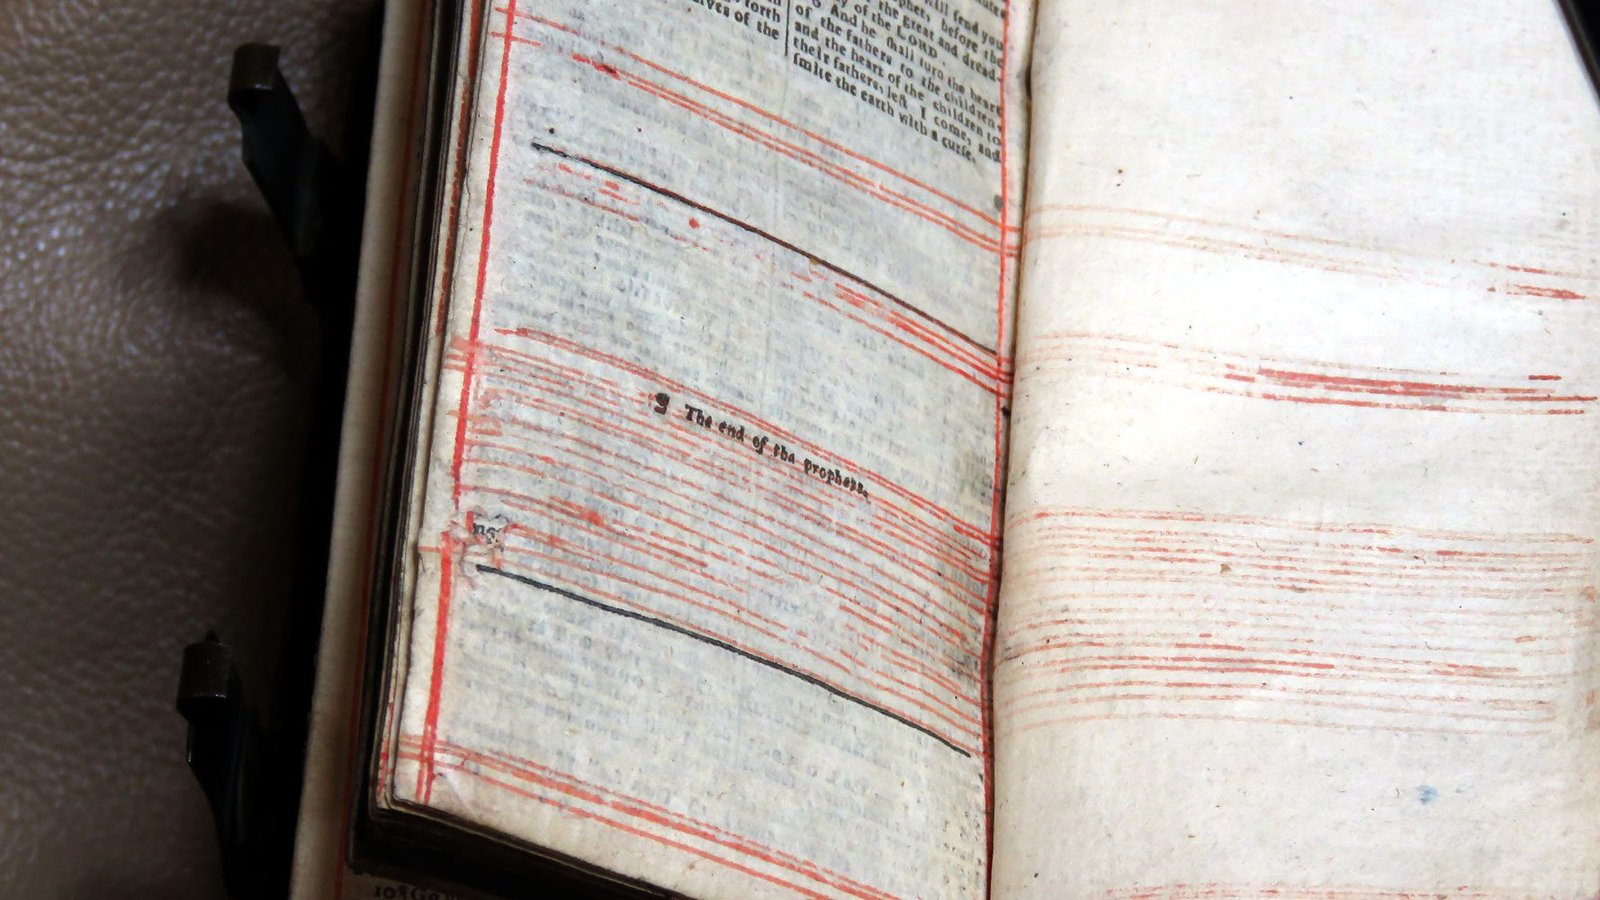 forth
lves of the
will send you
phet, before the
y of the great and dread-
of the LORD.
6 And he shall turn the heart
of the fathers to the children,
and the heart of the children to
their fathers, lest I come, and
smite the earth with a curse.
¶ The end of the prophets.